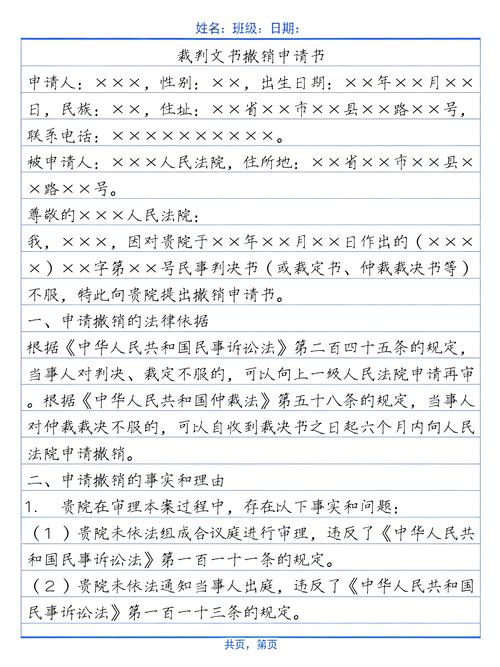 姓名：班级：日期：
裁判文书撤销申请书
申请人：×××，性别：××，出生日期：××年××月××
日，民族：××，住址：××省××市××县××路××号，
联系电话：××××××××××。
被申请人：×××人民法院，住所地：××省××市××县×
×路××号。
尊敬的×××人民法院：
我，×××，因对贵院于××年××月××日作出的（×××
×）××字第××号民事判决书（或裁定书、仲裁裁决书等）
不服，特此向贵院提出撤销申请书。
一、申请撤销的法律依据
根据《中华人民共和国民事诉讼法》第二百四十五条的规定，
当事人对判决、裁定不服的，可以向上一级人民法院申请再审
。根据《中华人民共和国仲裁法》第五十八条的规定，当事人
对仲裁裁决不服的，可以自收到裁决书之日起六个月内向人民
法院申请撤销。
二、申请撤销的事实和理由
1. 贵院在审理本案过程中，存在以下事实和问题：
（1）贵院未依法组成合议庭进行审理，违反了《中华人民共
和国民事诉讼法》第一百一十一条的规定。
（2）贵院未依法通知当事人出庭，违反了《中华人民共和国
民事诉讼法》第一百一十三条的规定。
共页，第页